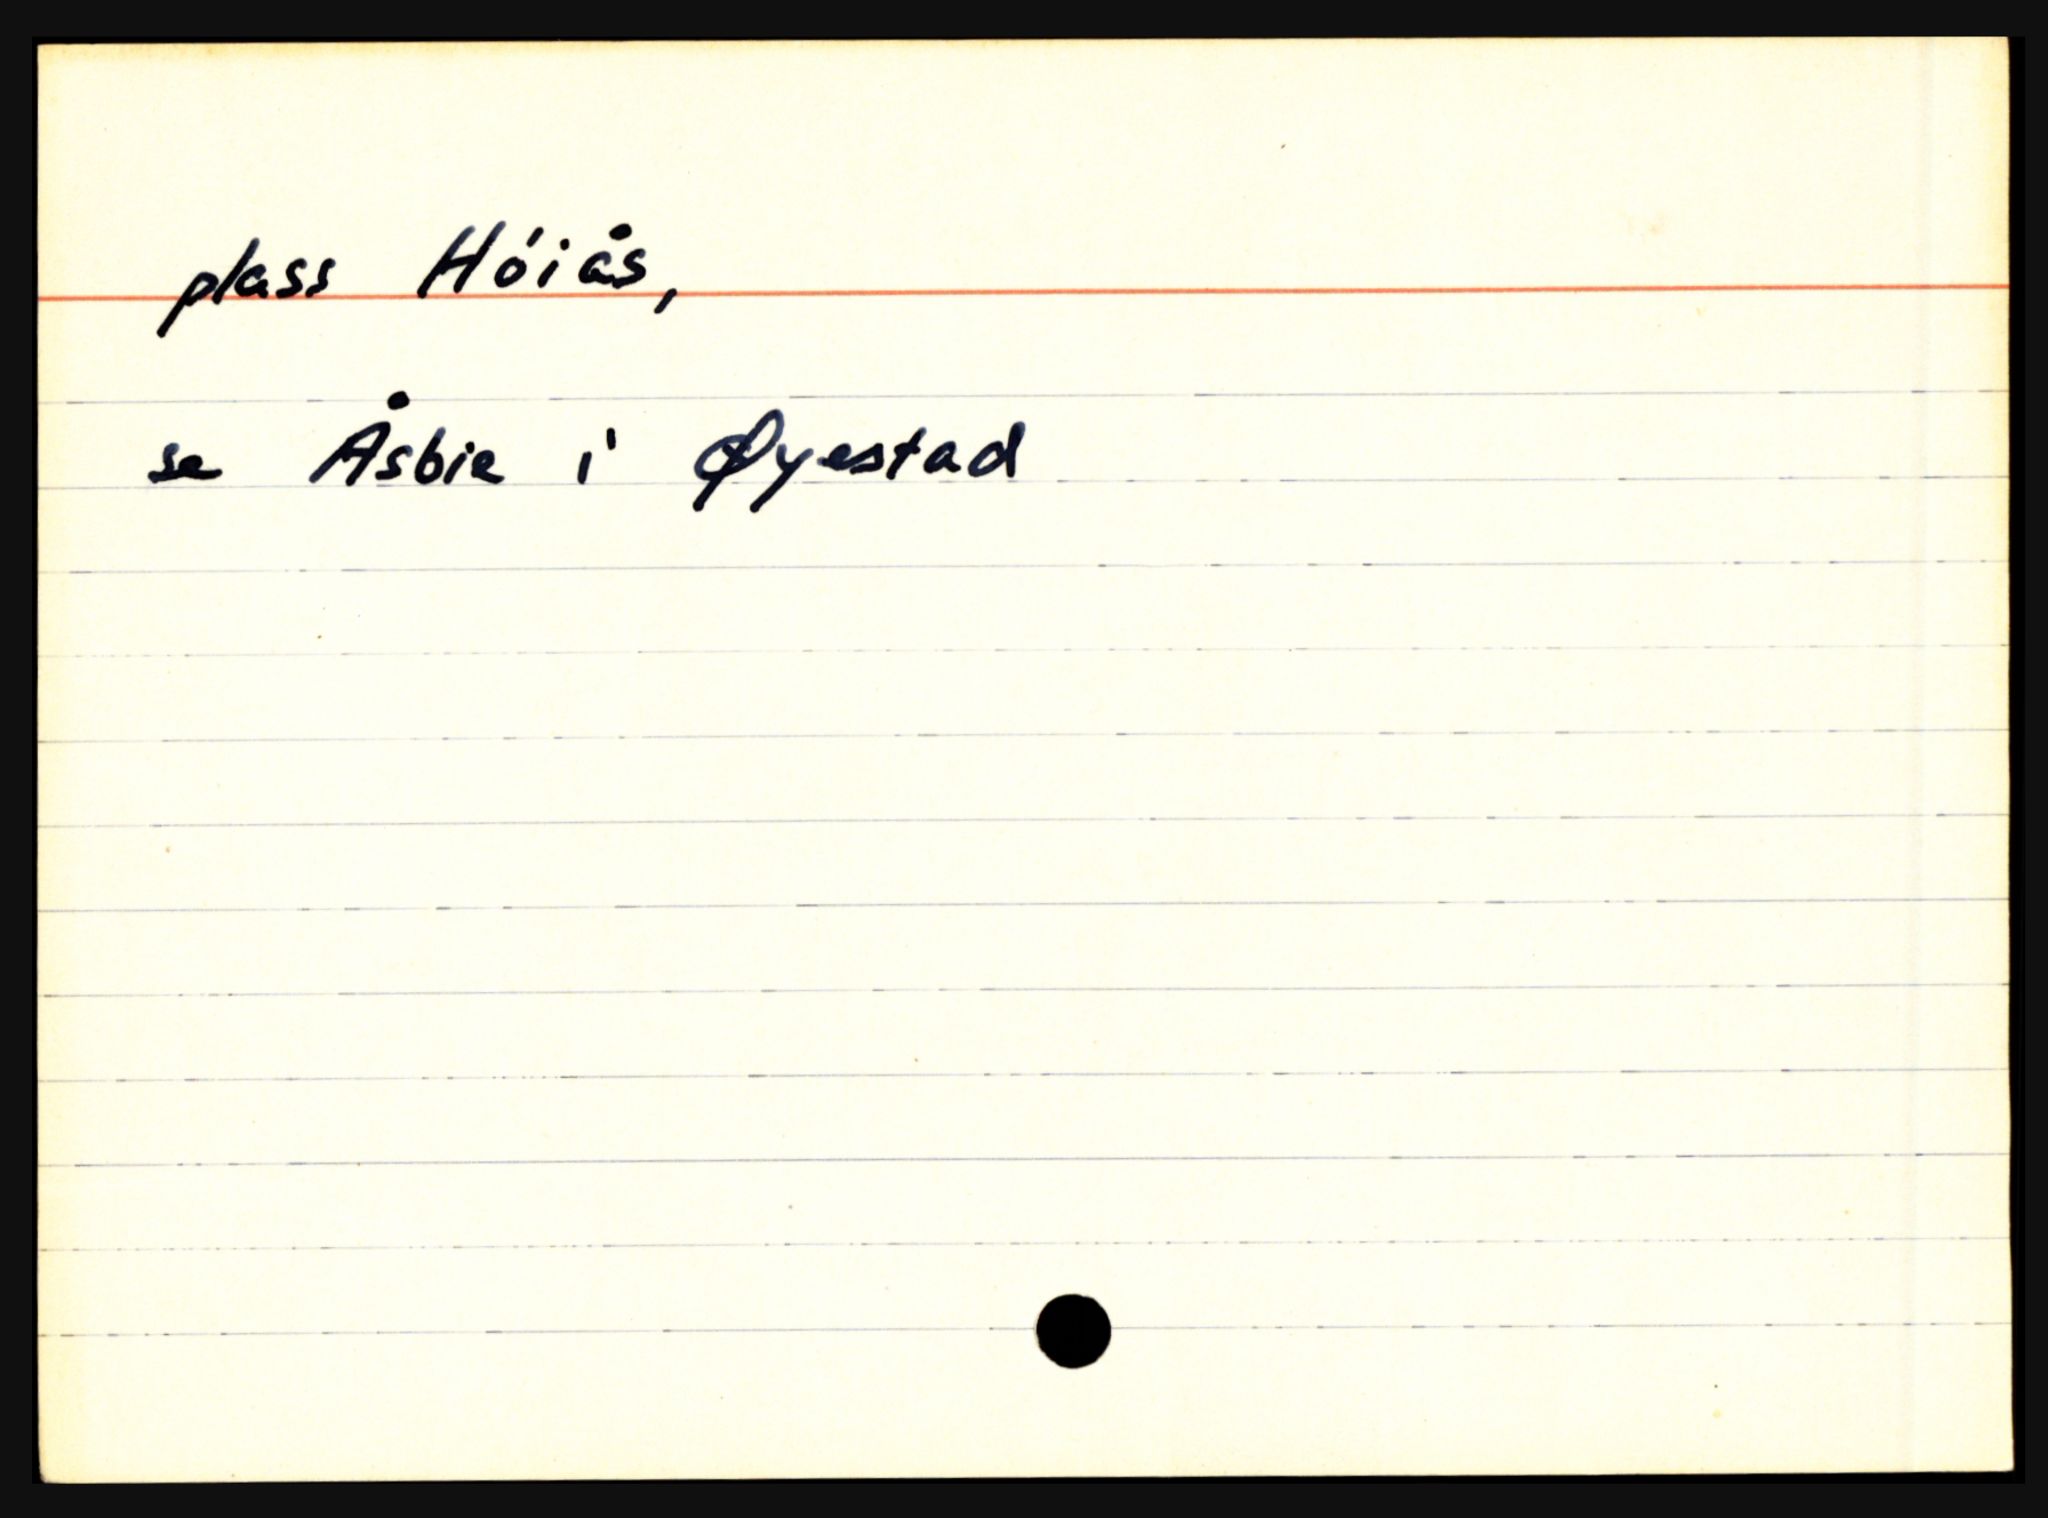 plass Hóiås,
se Åsbie i Øyestad